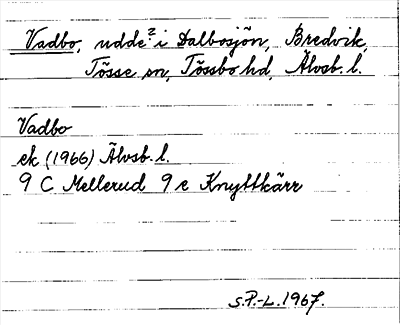 Vadbo, udde? i Dalbosjön, Bredvik,
Tösse sn, Tössbo hd, Älvsb. l.
Vadbo
ek (1966) Älvsb. l.
9 C Mellerud 9 e Knyttkärr
S.P.-L. 1967.